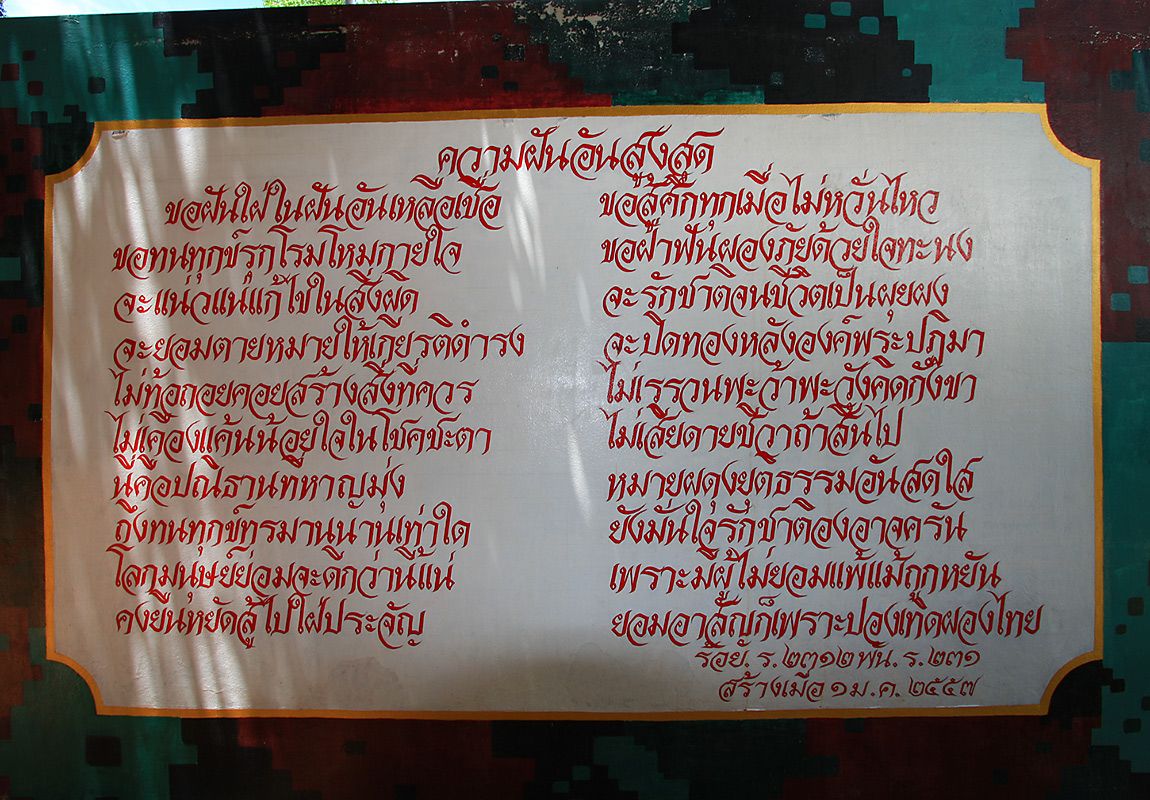 ความฝันอันสูงสุด
ขอฝันใฝ่ในฝันอันเหลือเชื่อ ขอสู้ศึกทุกเมื่อไม่หวั่นไหว
ขอทนทุกข์รุกโรมโหมกายใจ ขอฝ่าฟันผองภัยด้วยใจทะนง
จะแน่วแน่แก้ไขในสิ่งผิด จะรักชาติจนชีวิตเป็นผุยผง
จะยอมตายหมายให้เกียรติดำรง จะปิดทองหลังองค์พระปฏิมา
ไม่ท้อถอยคอยสร้างสิ่งที่ควร ไม่เรรวนพะว้าพะวังคิดกังขา
ไม่เคืองแค้นน้อยใจในโชคชะตา ไม่เสียดายชีวาถ้าสิ้นไป
นี่คือปณิธานที่หาญมุ่ง หมายผดุงยุติธรรมอันสดใส
ถึงทนทุกข์ทรมานนานเท่าใด ยังมั่นใจรักชาติองอาจครัน
โลกมนุษย์ย่อมจะดีกว่านี้แน่ เพราะมีผู้ไม่ยอมแพ้แม้ถูกหยัน
คงยืนหยัดสู้ไปใฝ่ประจัญ ยอมอาสัญก็เพราะปองเทิดผองไทย
ร้อย. ร.๒๓๑๒ พัน. ร.๒๓๑
สร้างเมื่อ ๑ ม.ค. ๒๕๕๗